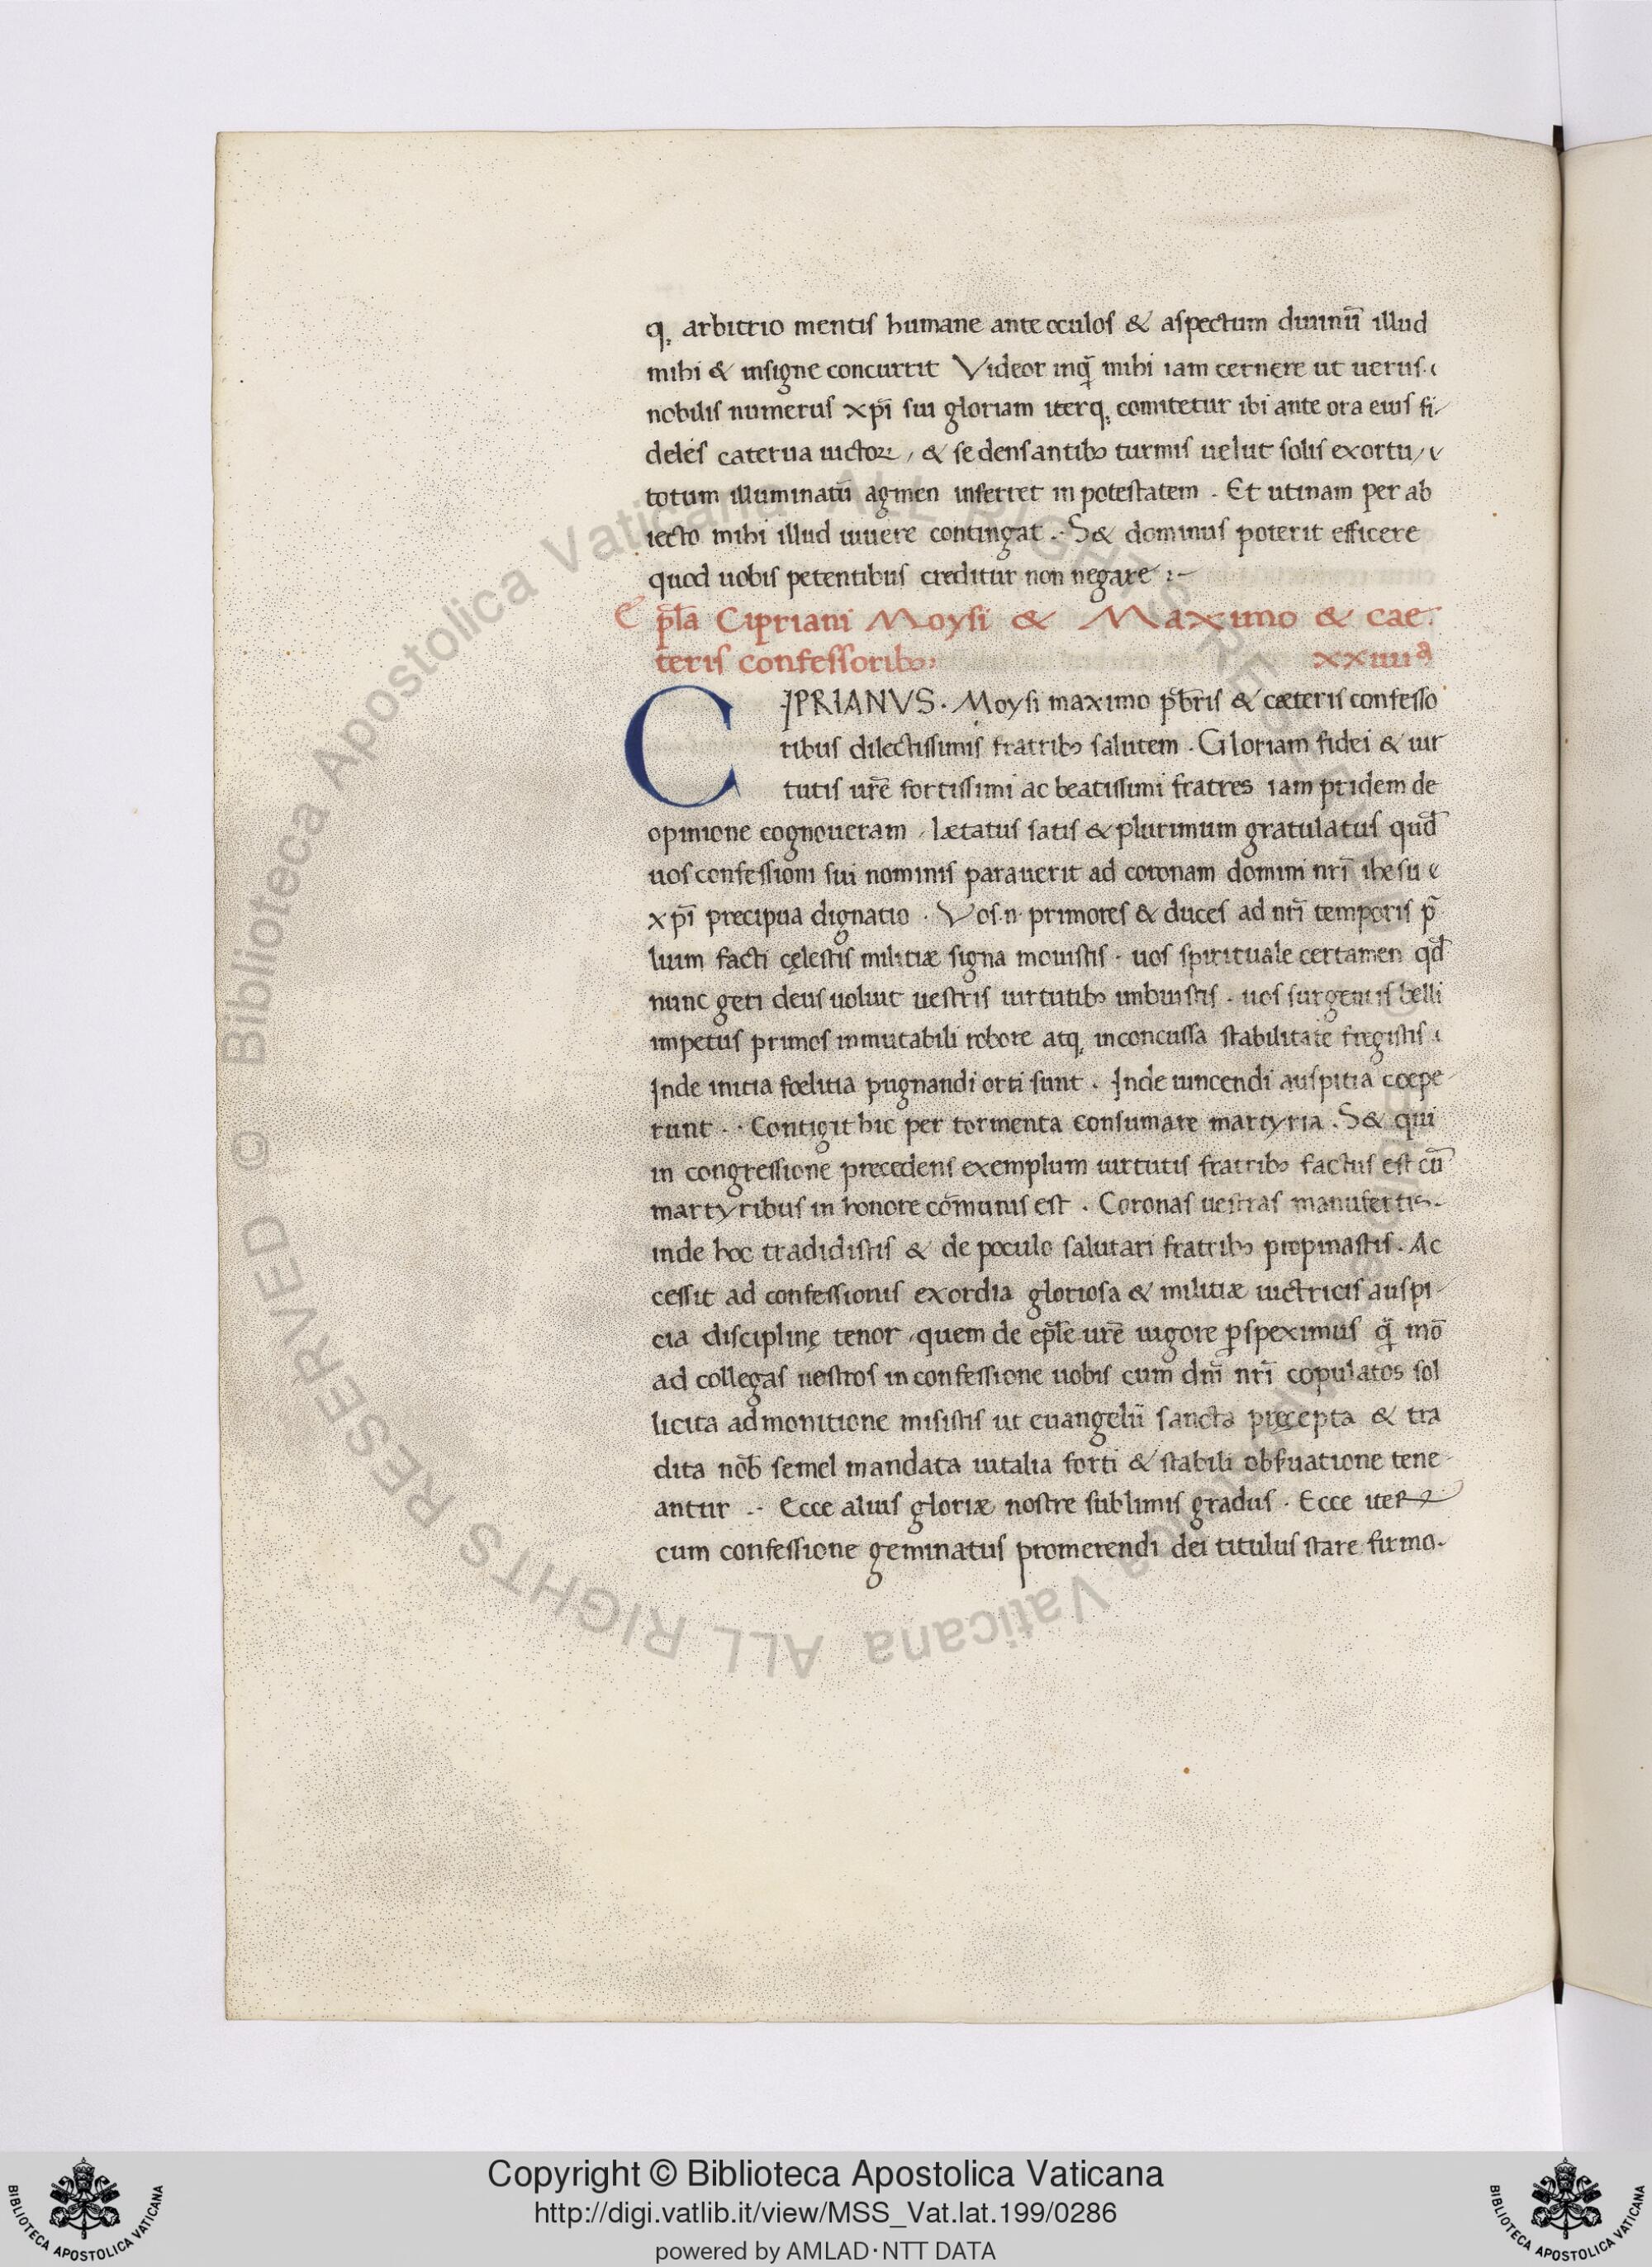 q; arbitrio mentis humane ante oculos & aspectum diuinū illud
mihi & insigne concurrit Videor inq̄ mihi iam cernere ut uerus.
nobilis numerus xp̄i sui gloriam iterq; comitetur ibi ante ora eius fi-
deles caterua uictoꝝ, & se densantibꝰ turmis uelut solis exortu,
totum illuminatū agmen inferret in potestatem . Et utinam per ab
iecto mihi illud uiuere contingat . S& dominus poterit efficere
quod uobis petentibus creditur non negare :-
Ep̄la Cipriani Moysi & Maximo & cae:
teris confessoribꝰ: xxiiiiª
CIPRIANVS . Moysi maximo p̄bris & cæteris confesso
ribus dilectissimis fratribꝰ salutem . Gloriam fidei & uir
tutis ur̄e fortissimi ac beatissimi fratres iam pridem de
opinione cognoueram , lætatus satis & plurimum gratulatus qud̄
uos confessioni sui nominis parauerit ad coronam domini nr̄i ihesu
xp̄i precipua dignatio . Vos .n. primores & duces ad nr̄i temporis p̄
lium facti cęlestis militiæ signa mouistis . uos spirituale certamen qd̄
nunc geri deus uoluit uestris uirtutibꝰ imbuistis . uos surgentis belli
impetus primos inmutabili robore atq; inconcussa stabilitate fregistis
Inde initia fœlitia pugnandi orti sunt . Inde uincendi auspitia coepe-
runt . . Contigit hic per tormenta consumare martyria . S& qui
in congressione precedens exemplum uirtutis fratribꝰ factus est cū
martyribus in honore cōmunis est . Coronas uestras manu fertis.
inde hoc tradidistis & de poculo salutari fratribꝰ propinastis . Ac
cessit ad confessionis exordia gloriosa & militiæ uictricis auspi-
cia disciplinę tenor , quem de ep̄le ur̄e uigore ꝑspeximus q̄ mō
ad collegas uestros in confessione uobis cum dn̄i nr̄i copulatos sol
licita admonitione misistis ut euangelii sancta pręcepta & tra
dita nob̄ semel mandata uitalia forti & stabili obs̄uatione tene-
antur . . Ecce alius gloriæ nostre sublimis gradus . Ecce iter
cum confessione geminatus promerendi dei titulus stare firmo-
Biblioteca Apostolica Vaticana ALL RIGHTS RESERVED ©
Copyright © Biblioteca Apostolica Vaticana
http://digi.vatlib.it/view/MSS_Vat.lat.199/0286
powered by AMLAD·NTT DATA
BIBLIOTECA APOSTOLICA VATICANA
BIBLIOTECA APOSTOLICA VATICANA